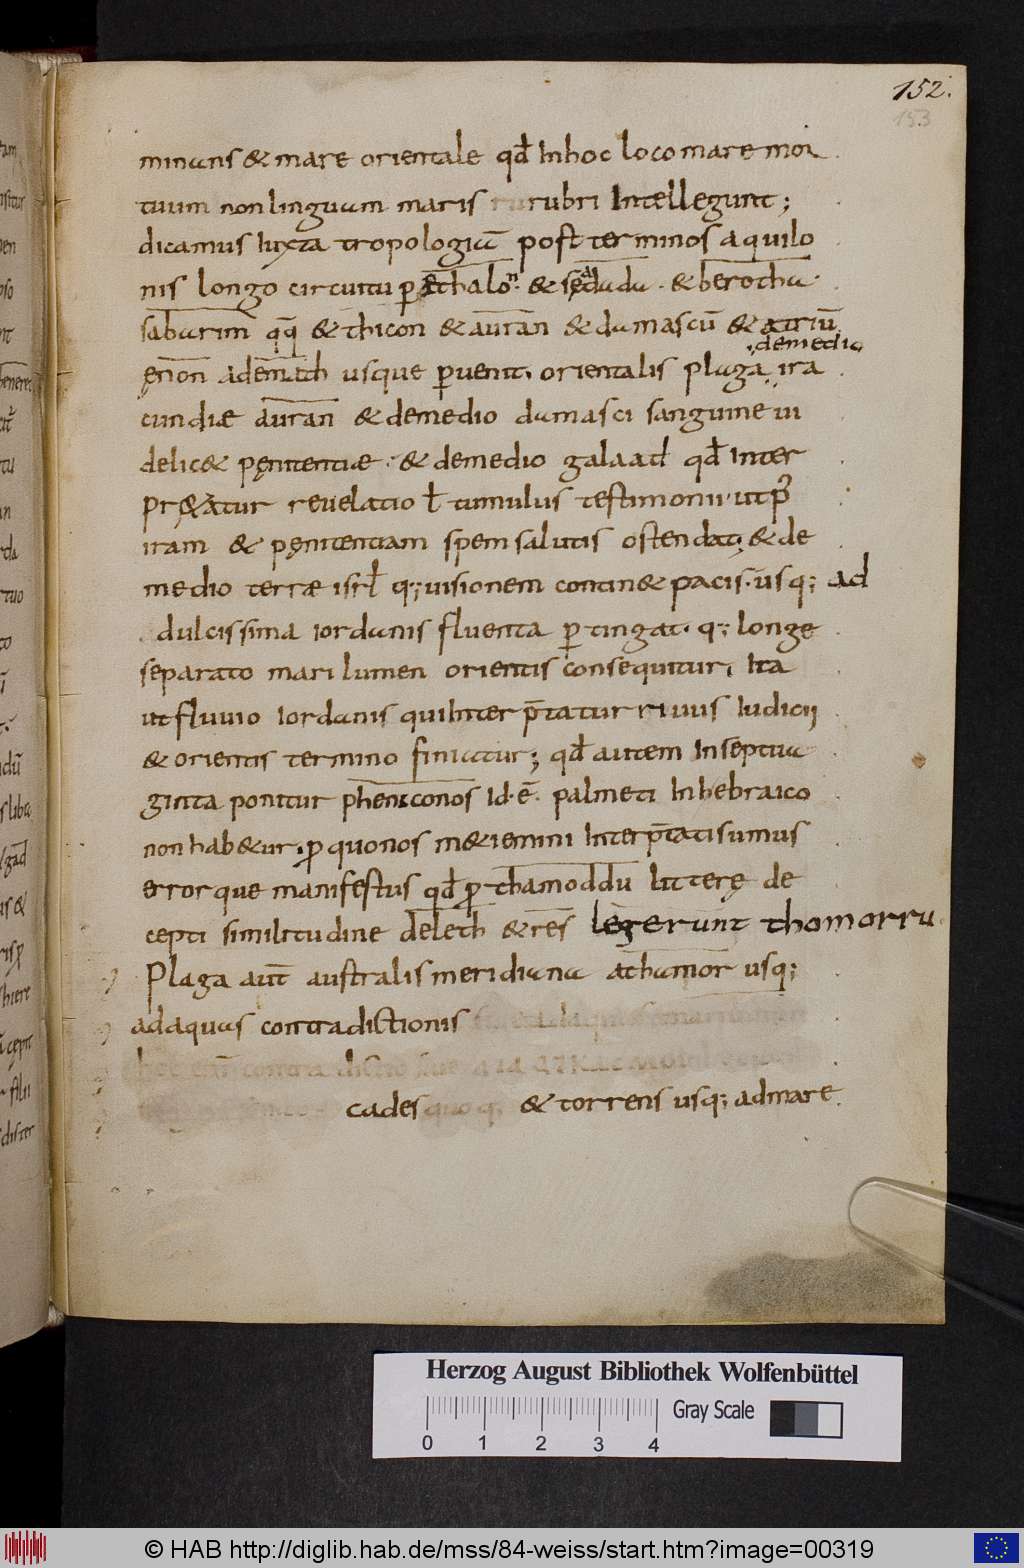 152.
153
minans & mare orientale qđ In hoc loco mare mor
tuum non linguam maris rubri Intellegunt;
dicamus Iuxta tropologiā post terminos aquilo
nis longo circuitu p &halon. & sędada. & berotha
sabarim qq & thicon & auran & damascū & atriū
ęnon ademath usque puenit. orientalis plaga ira
demedio
cundiae auran & demedio damasci sanguine ui
delic& pęnitentiae. & demedio galaad qđ Inter
pr&atur reuelatio ł tumulus testimonii ut
iram & pęnitentiam spem salutis ostendat; & de
medio terrae isrł q; uisionem contin& pacis. usq; ad
dulcissima iordanis fluenta ptingat. q; longe
separato mari lumen orientis consequitur. Ita
ut fluuio Iordanis qui Interp̄tatur riuus Iudicij
& orientis termino finiatur; qđ autem In septua
ginta ponitur pheniconos Id.ē. palmeti In hebraico
non hab&ur. p quo nos m&iemini Interp̄tati sumus
errorque manifestus qđ p thamoddu litterę de
cepti similitudine deleth & res legerunt thomorru
Plaga aut australis meridiana athamor usq;
ad aquas contradictionis
cades & torrens usq; ad mare
Herzog August Bibliothek Wolfenbüttel
0 1 2 3 4
Gray Scale
© HAB http://diglib.hab.de/mss/84-weiss/start.htm?image=00319